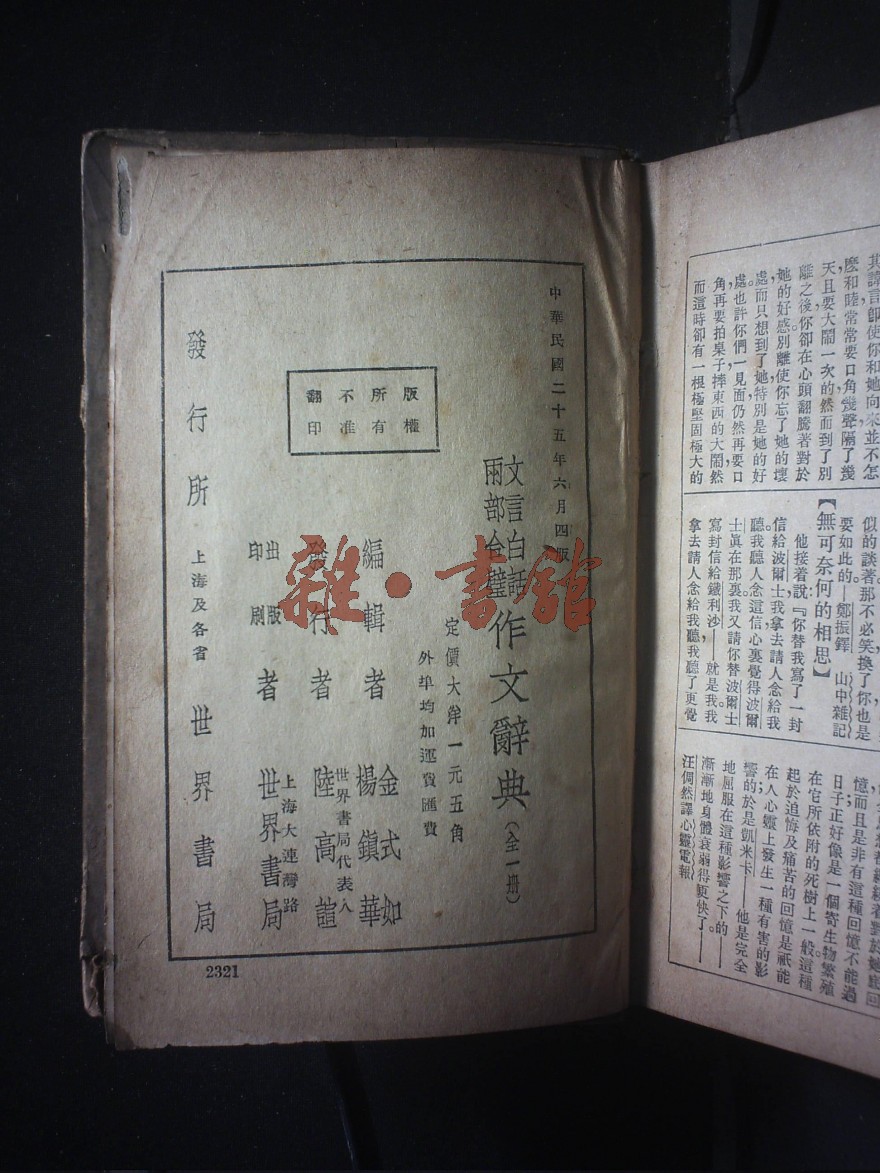 其譯言卽使你和她向來並不怎
麽和睦常常要口角幾聲隔了幾
天且要大鬧一次的然而到了別
離之後你卻在心頭翻騰著對於
她的好感別離使你忘了她的壞
處而只想到了她特別是她的好
處也許你們一見面仍然再要口
角再要拍桌子摔東西的大鬧然
而這時卻有一根極堅固極大的
似的談著那不必笑換了你也是
要如此的——鄭振鐸 山中雜記
【無可奈何的相思】
他接着說『你替我寫了一封
信給波爾士我拿去請人念給我
聽我聽人念這信心裏覺得波爾
士眞在那裏我又請你替波爾士
寫封信給鐵利沙——就是我我
拿去請人念給我聽我聽了更覺
憶而且是非有這種回憶不能過
日子正好像是一個寄生物繁殖
在它所依附的死樹上一般這種
起於追悔及痛苦的回憶是祇能
在人心靈上發生一種有害的影
響的於是凱米卡——他是完全
地屈服在這種影響之下的——
漸漸地身體衰弱得更快了——
汪倜然譯心靈電報
中華民國二十五年六月四版
文言白話
兩部合璧
作文辭典(全一册)
定價大洋一元五角
外埠均加運費匯費
版權
所有
不准
翻印
編輯者 金式如
楊鎮華
發行者 世界書局代表人
陸高誼
出版
印刷
者 上海大連灣路
世界書局
發行所 上海及各省 世界書局
2321
雜·書館